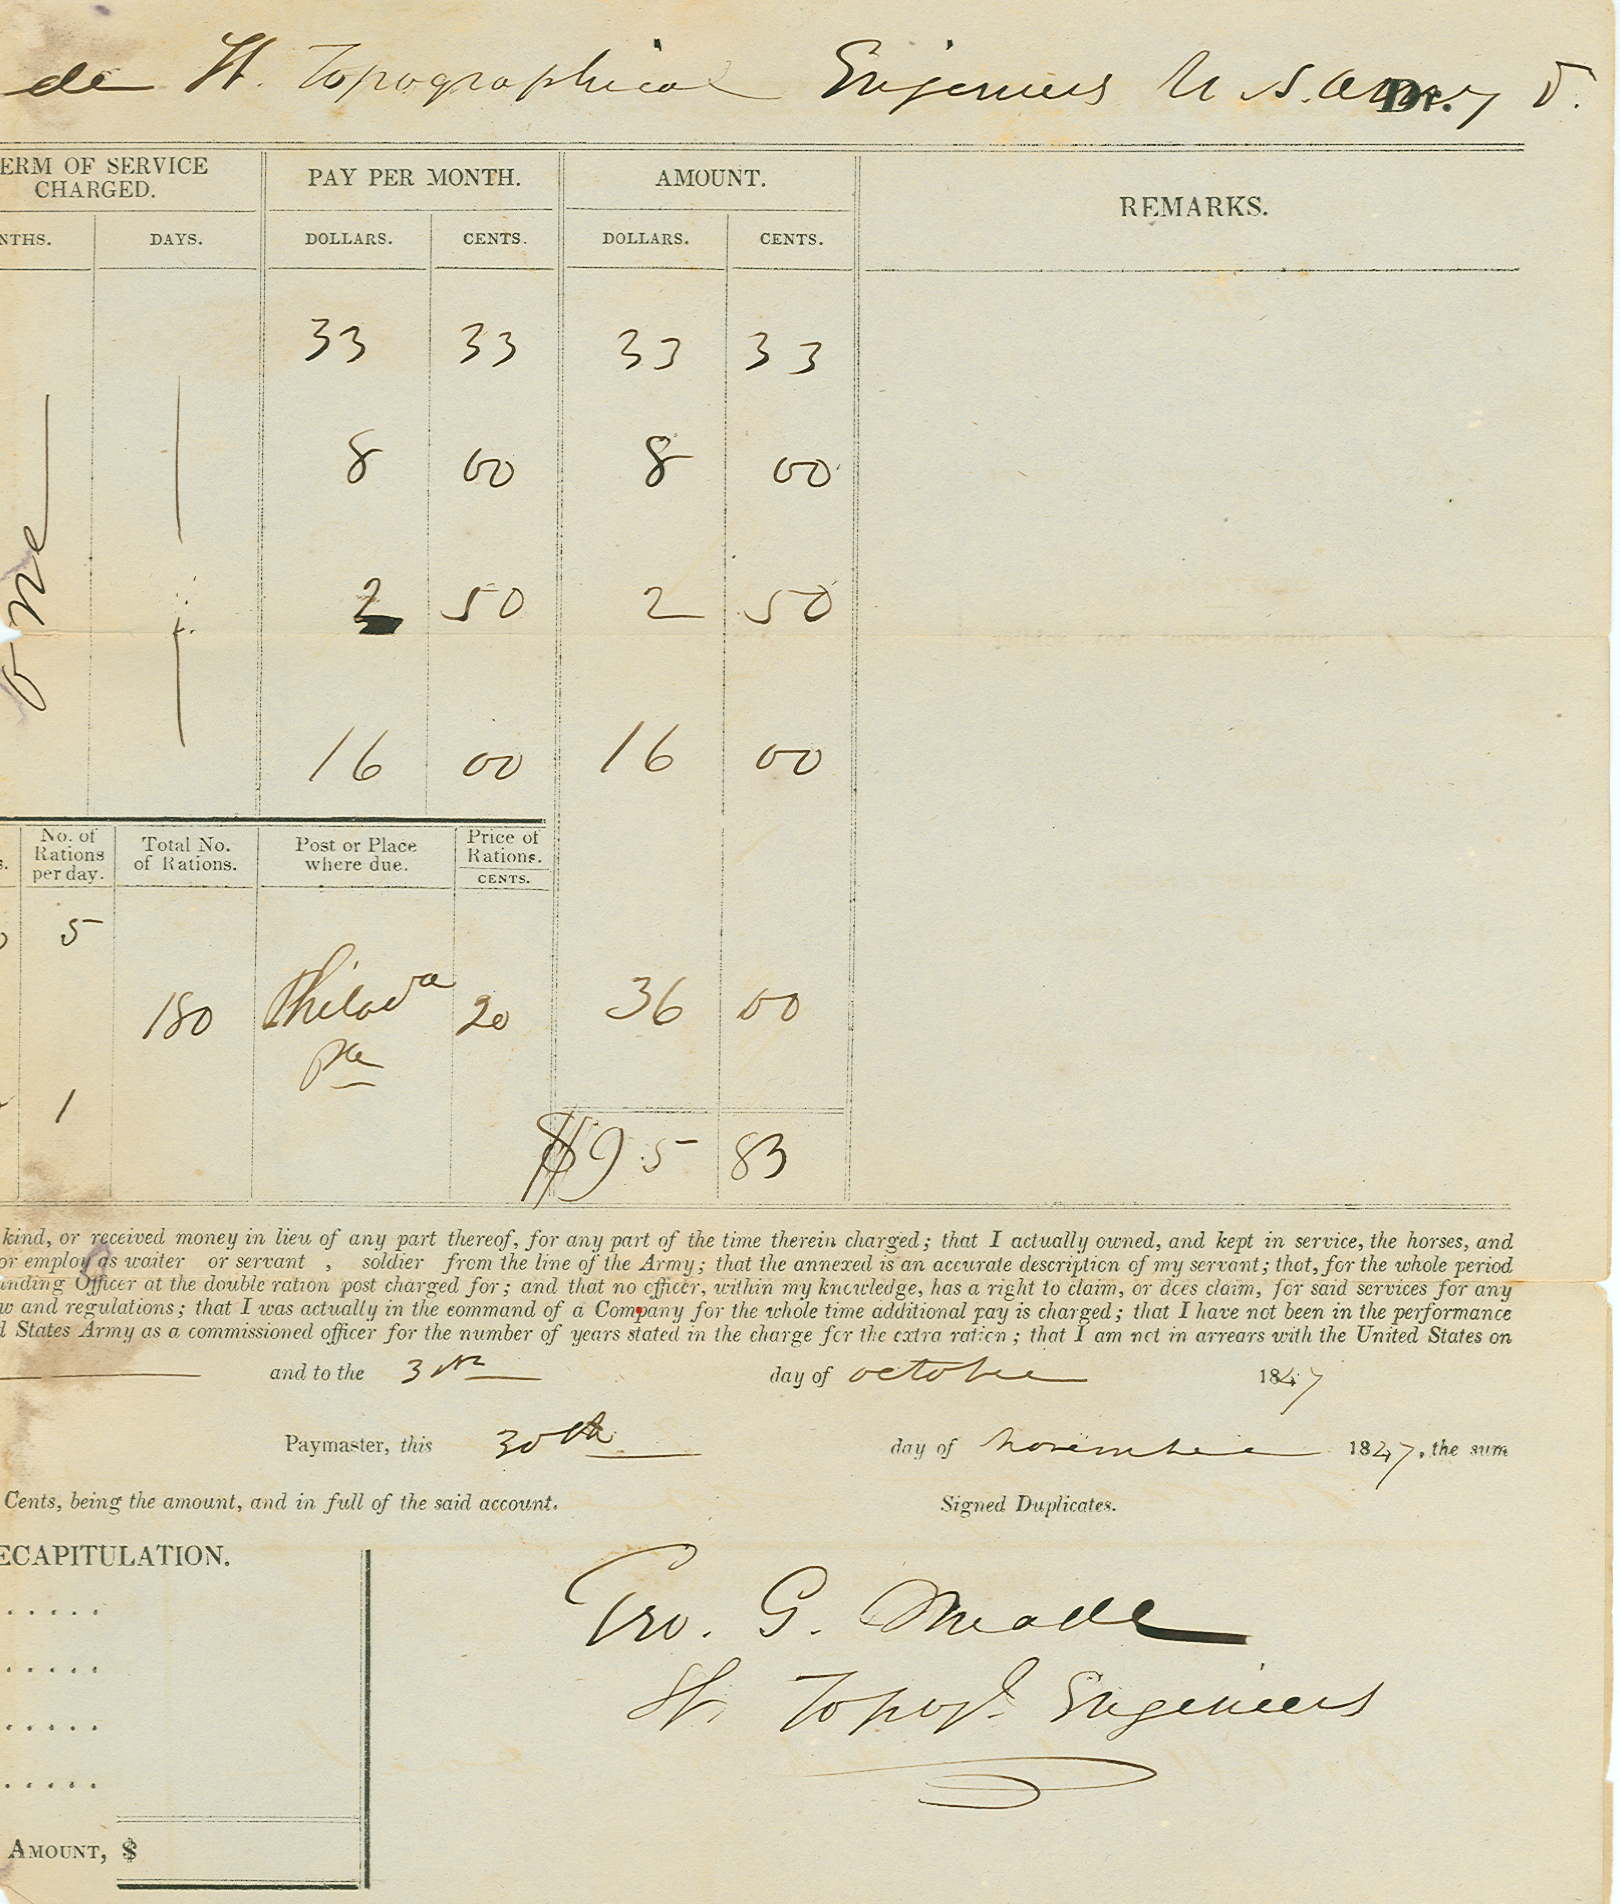 de Lt. Topographical Engineers U S. Army Dr.
ERM OF SERVICE CHARGED. PAY PER MONTH. AMOUNT. REMARKS.
NTHS. DAYS. DOLLARS. CENTS. DOLLARS. CENTS.
33 33 33 33
8 00 8 00
one
2 50 2 50
16 00 16 00
s. No. of Rations per day. Total No. of Rations. Post or Place where due. Price of Rations. CENTS.
5
180 Philada Pa 20 36 00
1
$95 83
kind, or received money in lieu of any part thereof, for any part of the time therein charged; that I actually owned, and kept in service, the horses, and
or employ as waiter or servant , soldier from the line of the Army; that the annexed is an accurate description of my servant; that, for the whole period
anding Officer at the double ration post charged for; and that no officer, within my knowledge, has a right to claim, or does claim, for said services for any
w and regulations; that I was actually in the command of a Company for the whole time additional pay is charged; that I have not been in the performance
d States Army as a commissioned officer for the number of years stated in the charge for the extra ration; that I am not in arrears with the United States on
and to the day of october 1847
Paymaster, this 30th day of november 1847, the sum
Cents, being the amount, and in full of the said account. Signed Duplicates.
ECAPITULATION.
Geo. G. Meade
Lt. Topogl. Engineers
AMOUNT, $